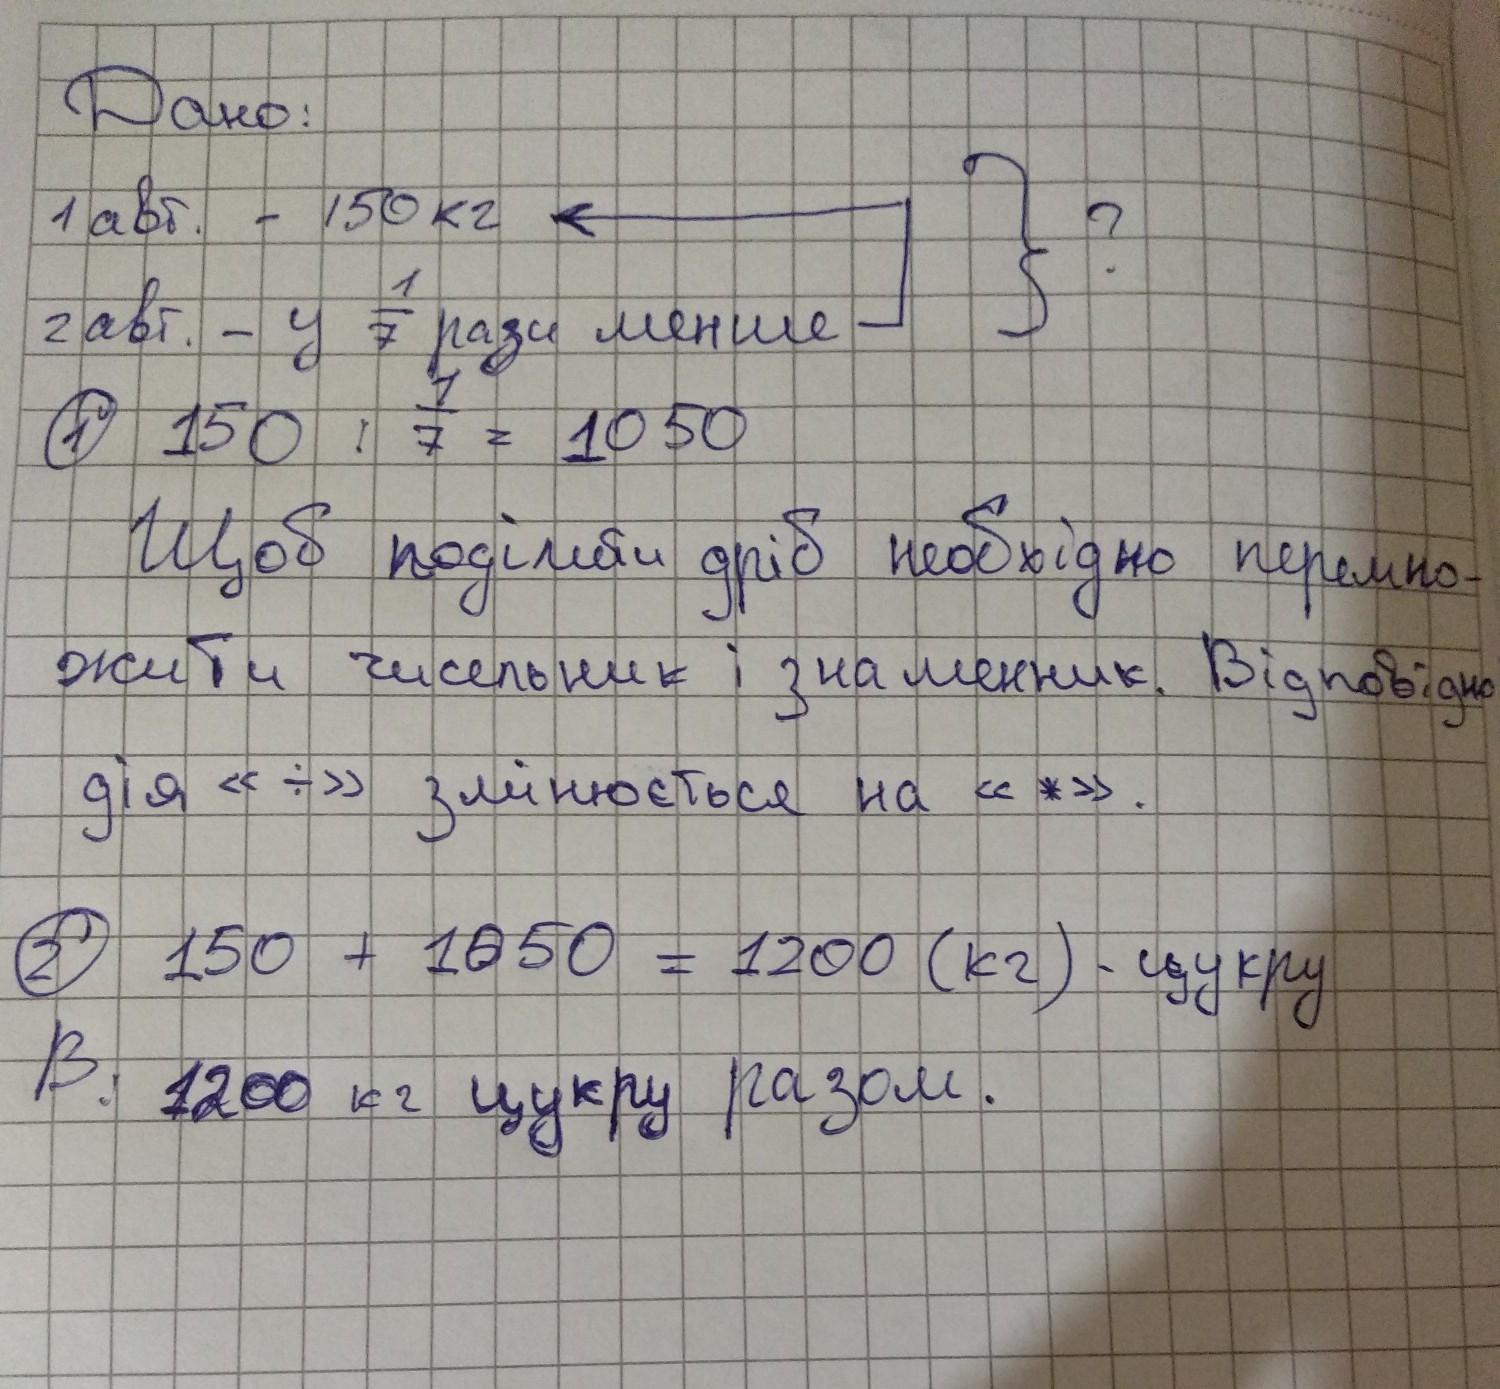 Дано:
1 авт. - 150 кг ?
2 авт. - у 1/7 рази менше
1 150 : 1/7 = 1050
Щоб поділити дріб необхідно перемно-
жити чисельник і знаменник. Відповідно
дія « ÷ » змінюється на « * ».
2 150 + 1050 = 1200 (кг) - цукру
В: 1200 кг цукру разом.